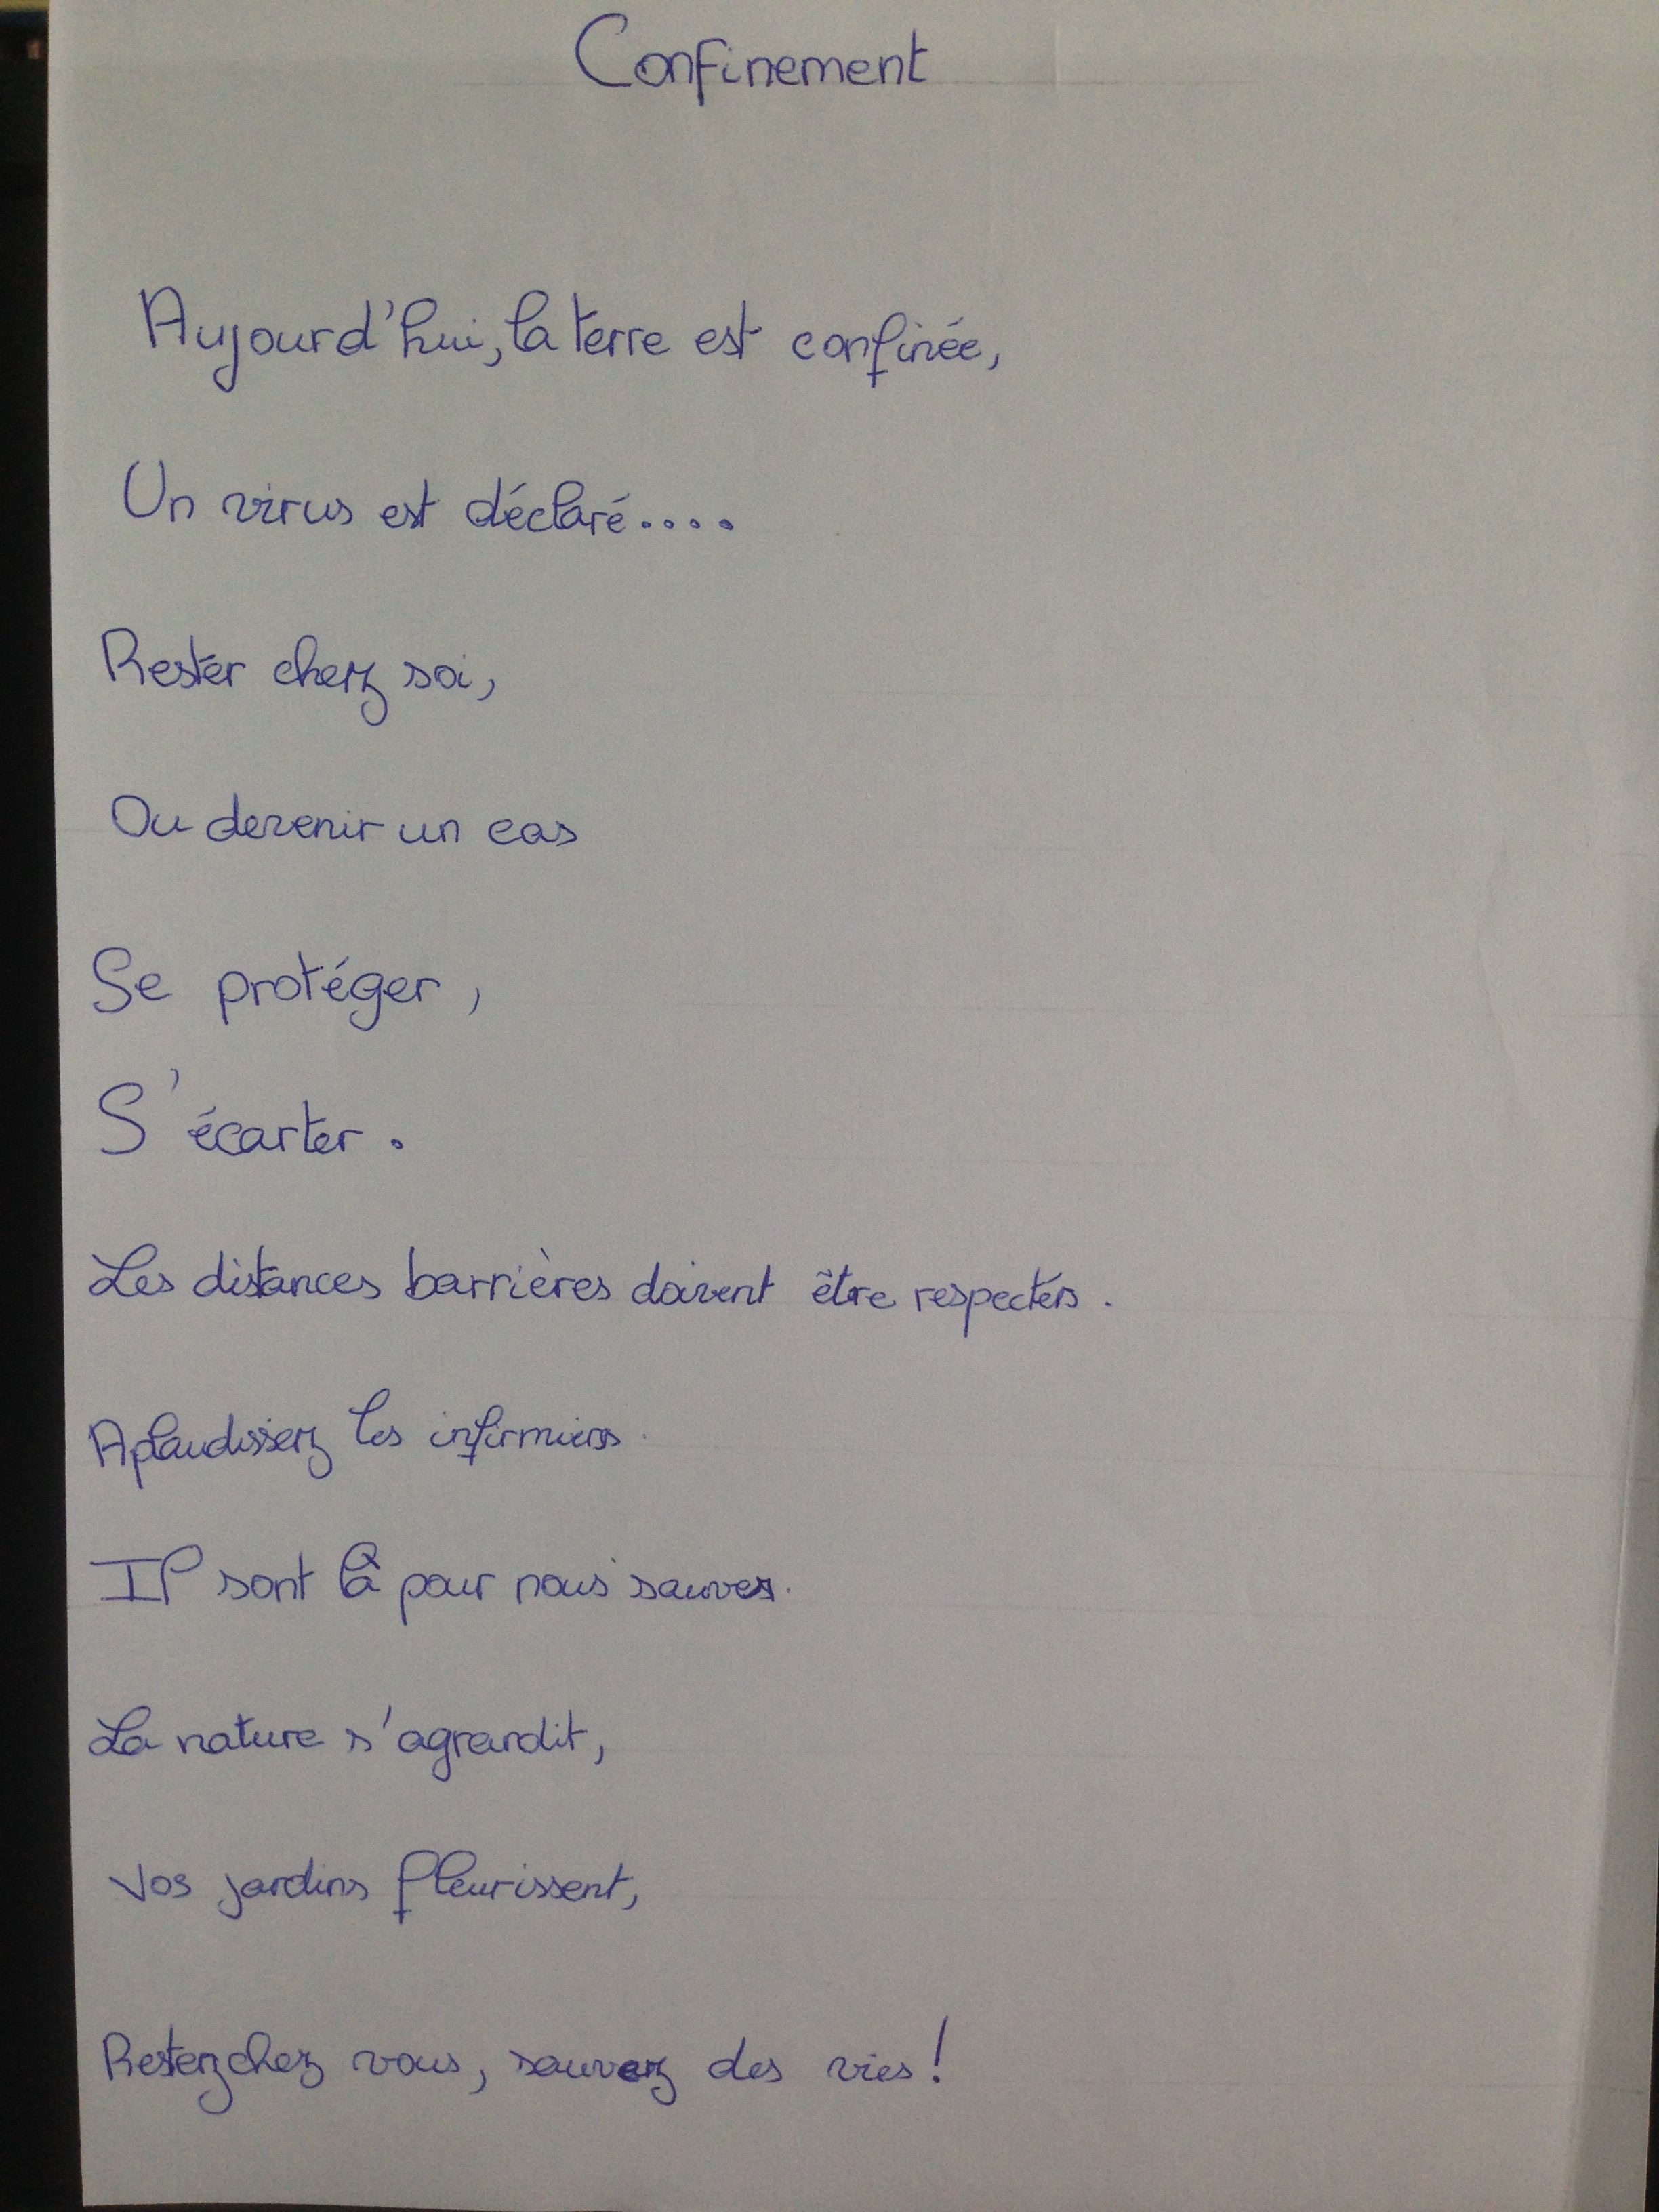 Confinement
Aujourd'hui, la terre est confinée,
Un virus est déclaré....
Rester chez soi,
Ou devenir un cas
Se protéger,
S'écarter.
Les distances barrières doivent être respectés.
Aplaudissez les infirmiers.
Il sont là pour nous sauver.
La nature s'agrandit,
Vos jardins fleurissent,
Restez chez vous, sauvez des vies!